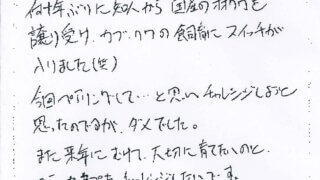 何十年ぶりに知人から国産のオオクワを
譲り受け、カブ・クワの飼育にスイッチが
入りました(笑)
今回ペアリングして…と思いチャレンジしようと
思ったのですが、ダメでした。
また来年にむけて、大切に育てたいのと、